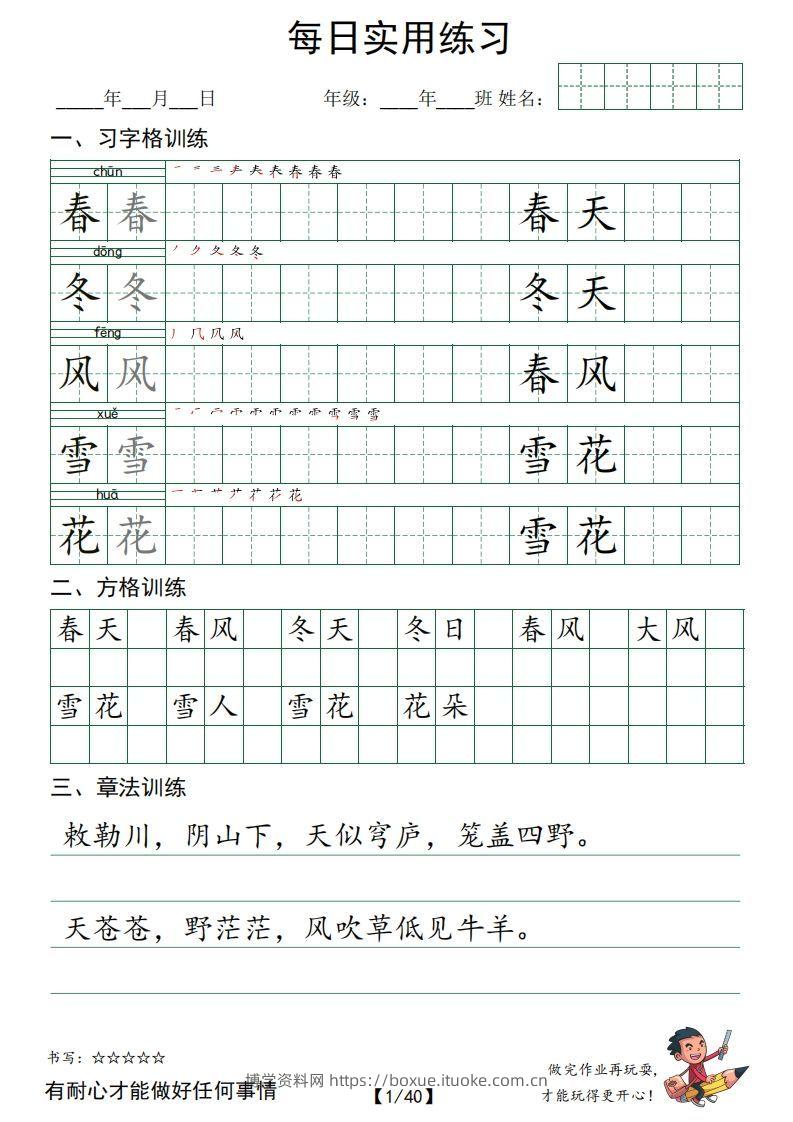 每日实用练习
_____年___月___日 年级：____年____班 姓名：
一、习字格训练
chūn
春 春 春 天
dōng
冬 冬 冬 天
fēng
风 风 春 风
xuě
雪 雪 雪 花
huā
花 花 雪 花
二、方格训练
春天 春风 冬天 冬日 春风 大风
雪花 雪人 雪花 花朵
三、章法训练
敕勒川，阴山下，天似穹庐，笼盖四野。
天苍苍，野茫茫，风吹草低见牛羊。
书写：☆☆☆☆☆
有耐心才能做好任何事情
博学资料网 https://boxue.ituoke.com.cn
【1/40】
做完作业再玩耍，
才能玩得更开心！